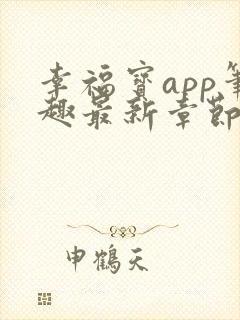 幸福宝app笔
趣最新章节
申鹤天